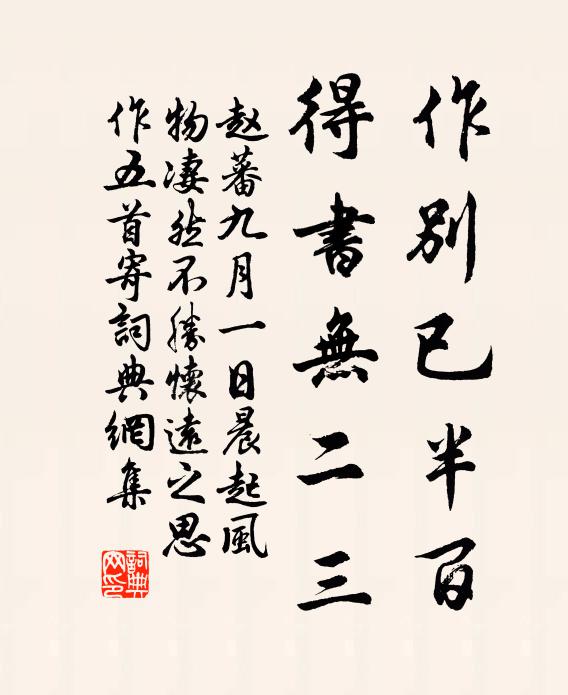 作別已半百
得書無二三
赵蕃九月一日晨起風
物凄然不勝懷遠之思
作五首寄詞典網集
詞典
网印